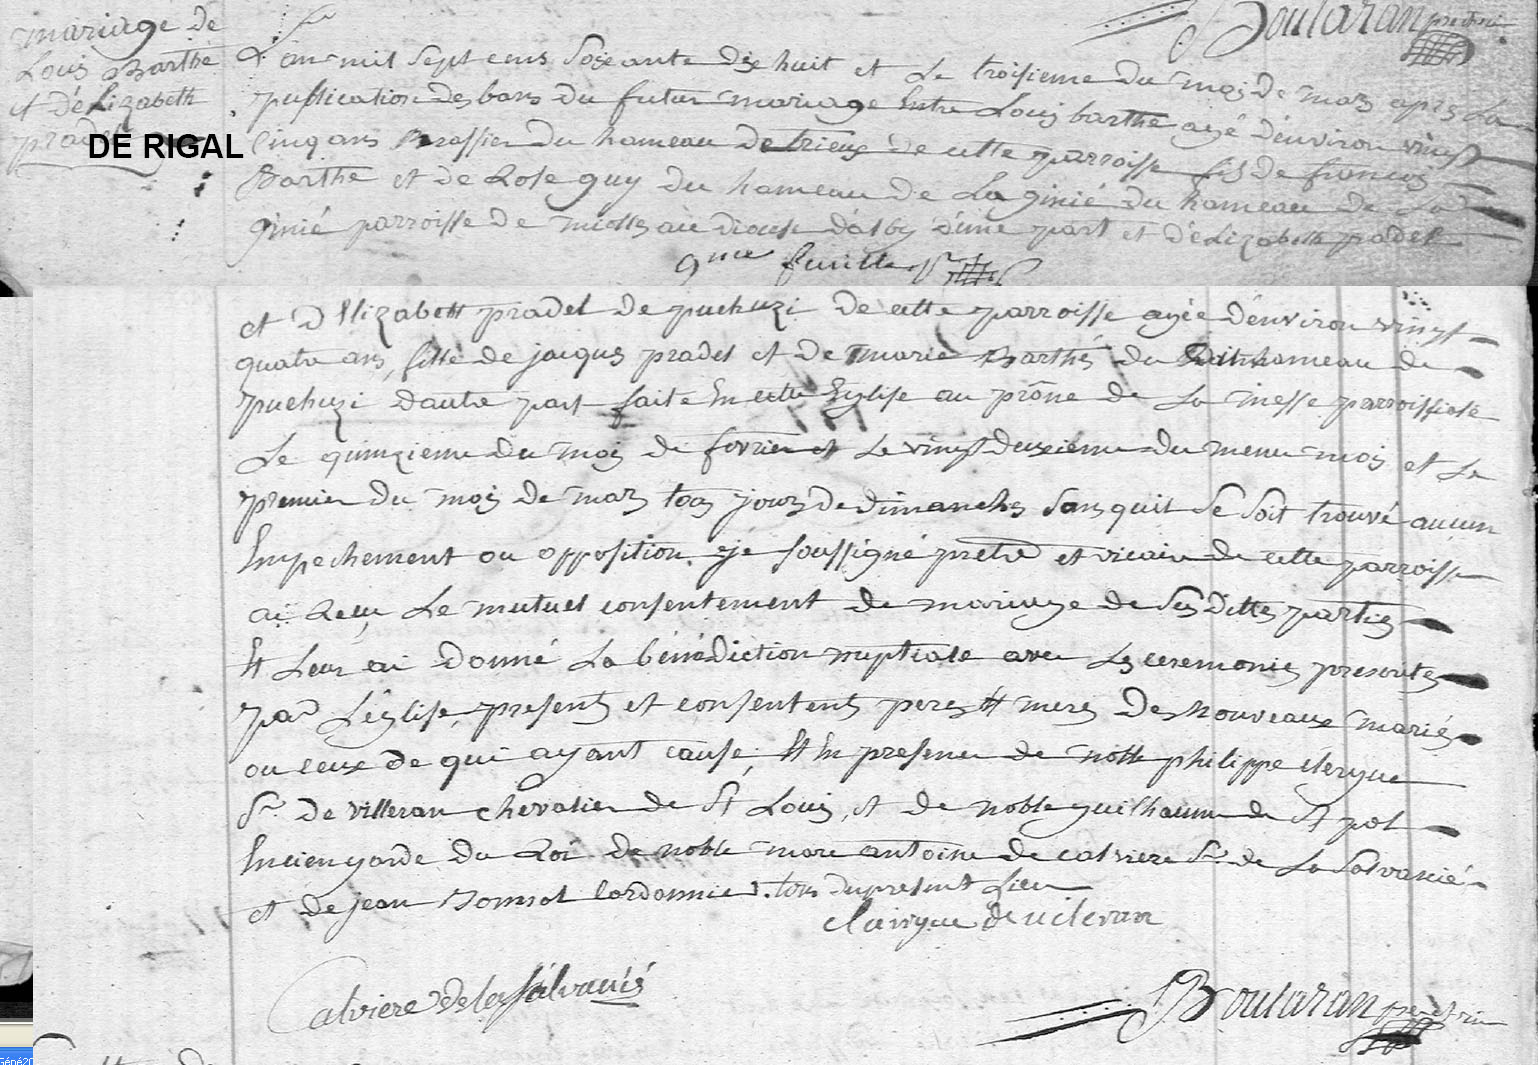 Boutaran pretre vic
mariage de
Louis Barthe
et d'Elizabeth
pradel
DE RIGAL
L'an mil sept cens soixante dix huit et le troisieme du mois de mars apres la
publication des bans du futur mariage entre Louis barthe agé d'environ vingt
cinq ans Brassier du hameau de trieux de cette parroisse fils de francois
Barthe et de Rose guy du hameau de La ginié du hameau de La
ginié parroisse de diocese d'alby d'une part et d'Elizabeth pradel
9me feuille
et d'Elizabeth pradel de puechuzi de cette parroisse agée d'environ vingt
quatre ans, fille de jacques pradel et de marie Barthe du dit hameau de
puechuzi d'autre part faite en cette Eglise au prône de la messe parroissiale
Le quinzieme du mois de fevrier et le vingt deuxieme du meme mois et le
premier du mois de mars tous jours de dimanches sans quil se soit trouvé aucun
Empechement ou opposition. je soussigné pretre et vicaire de cette parroisse
ai Recu Le mutuel consentement de mariage de ses dittes parties
Et Leur ai donné La bénédiction nuptiale avec Les ceremonies prescrites
par L'église, presents et consentents peres et meres des nouveaux mariés
ou ceux de qui ayant cause, Et En presence de noble philippe clergue
Sr. de villeran chevalier de St Louis, et de noble guilhaume de St pol
Encien garde du Roi de noble marc antoine de calviere Sr. de La Salvanié
et de jean cordonnier. tous du present Lieu
Clairgue de vileran
Calviere de la Salvanié
Boutaran pretre vic